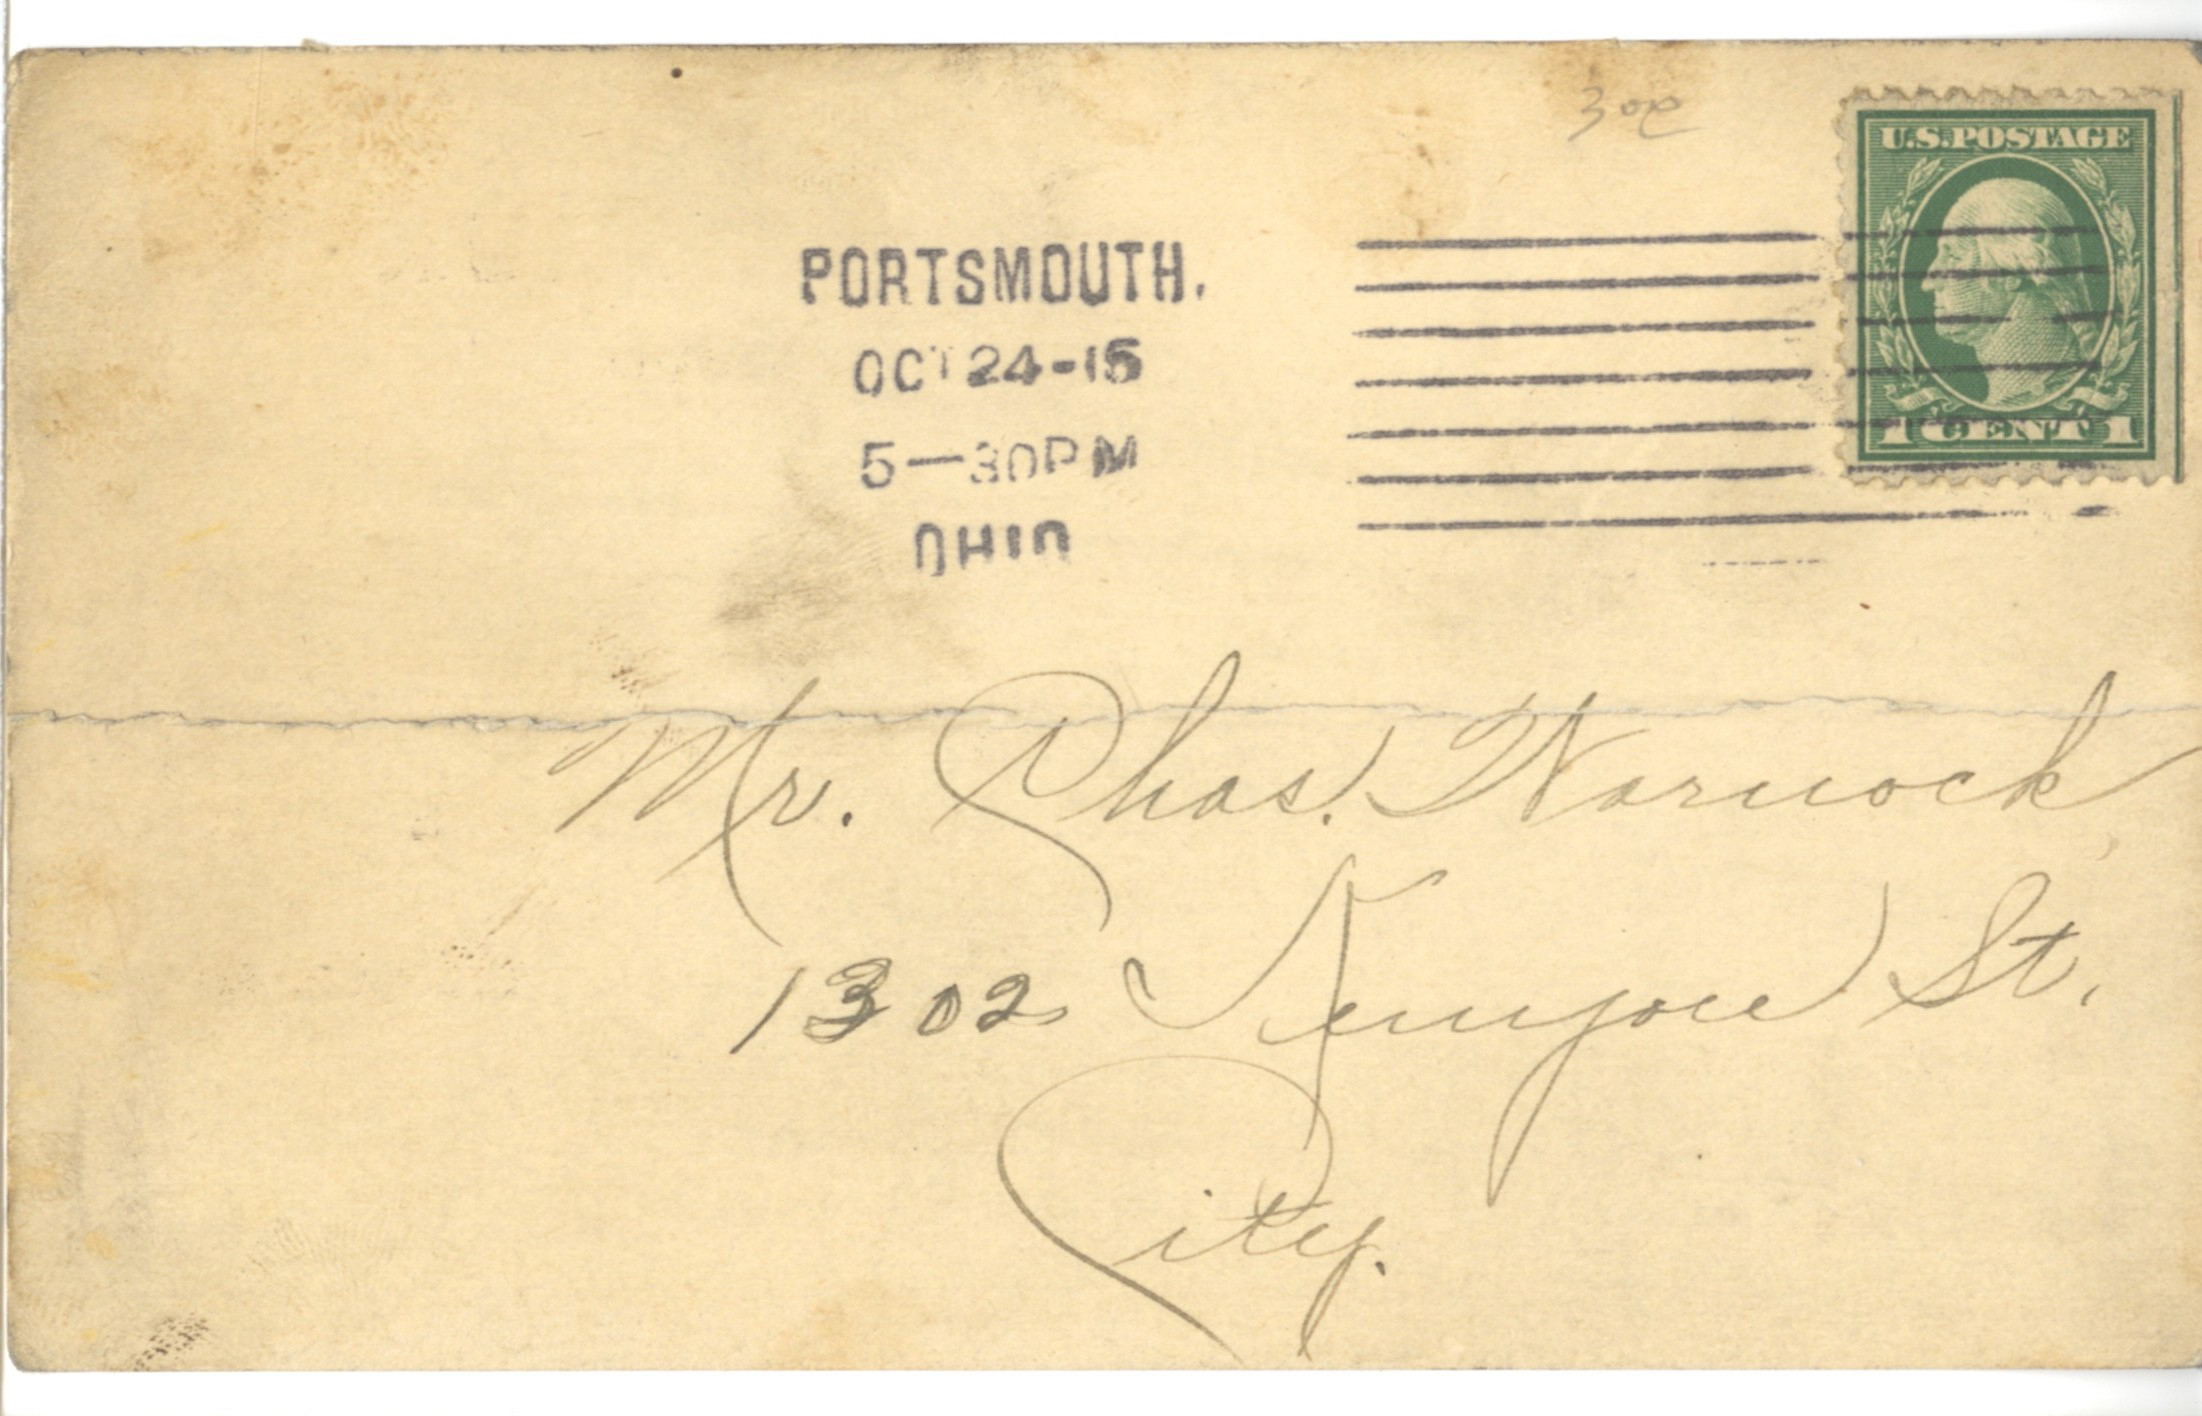 30¢
U.S.POSTAGE
PORTSMOUTH.
OCT 24-15
5-30PM
OHIO
1 CENT 1
Mr. Chas. Warnock
1302 Kenyon St.
City.